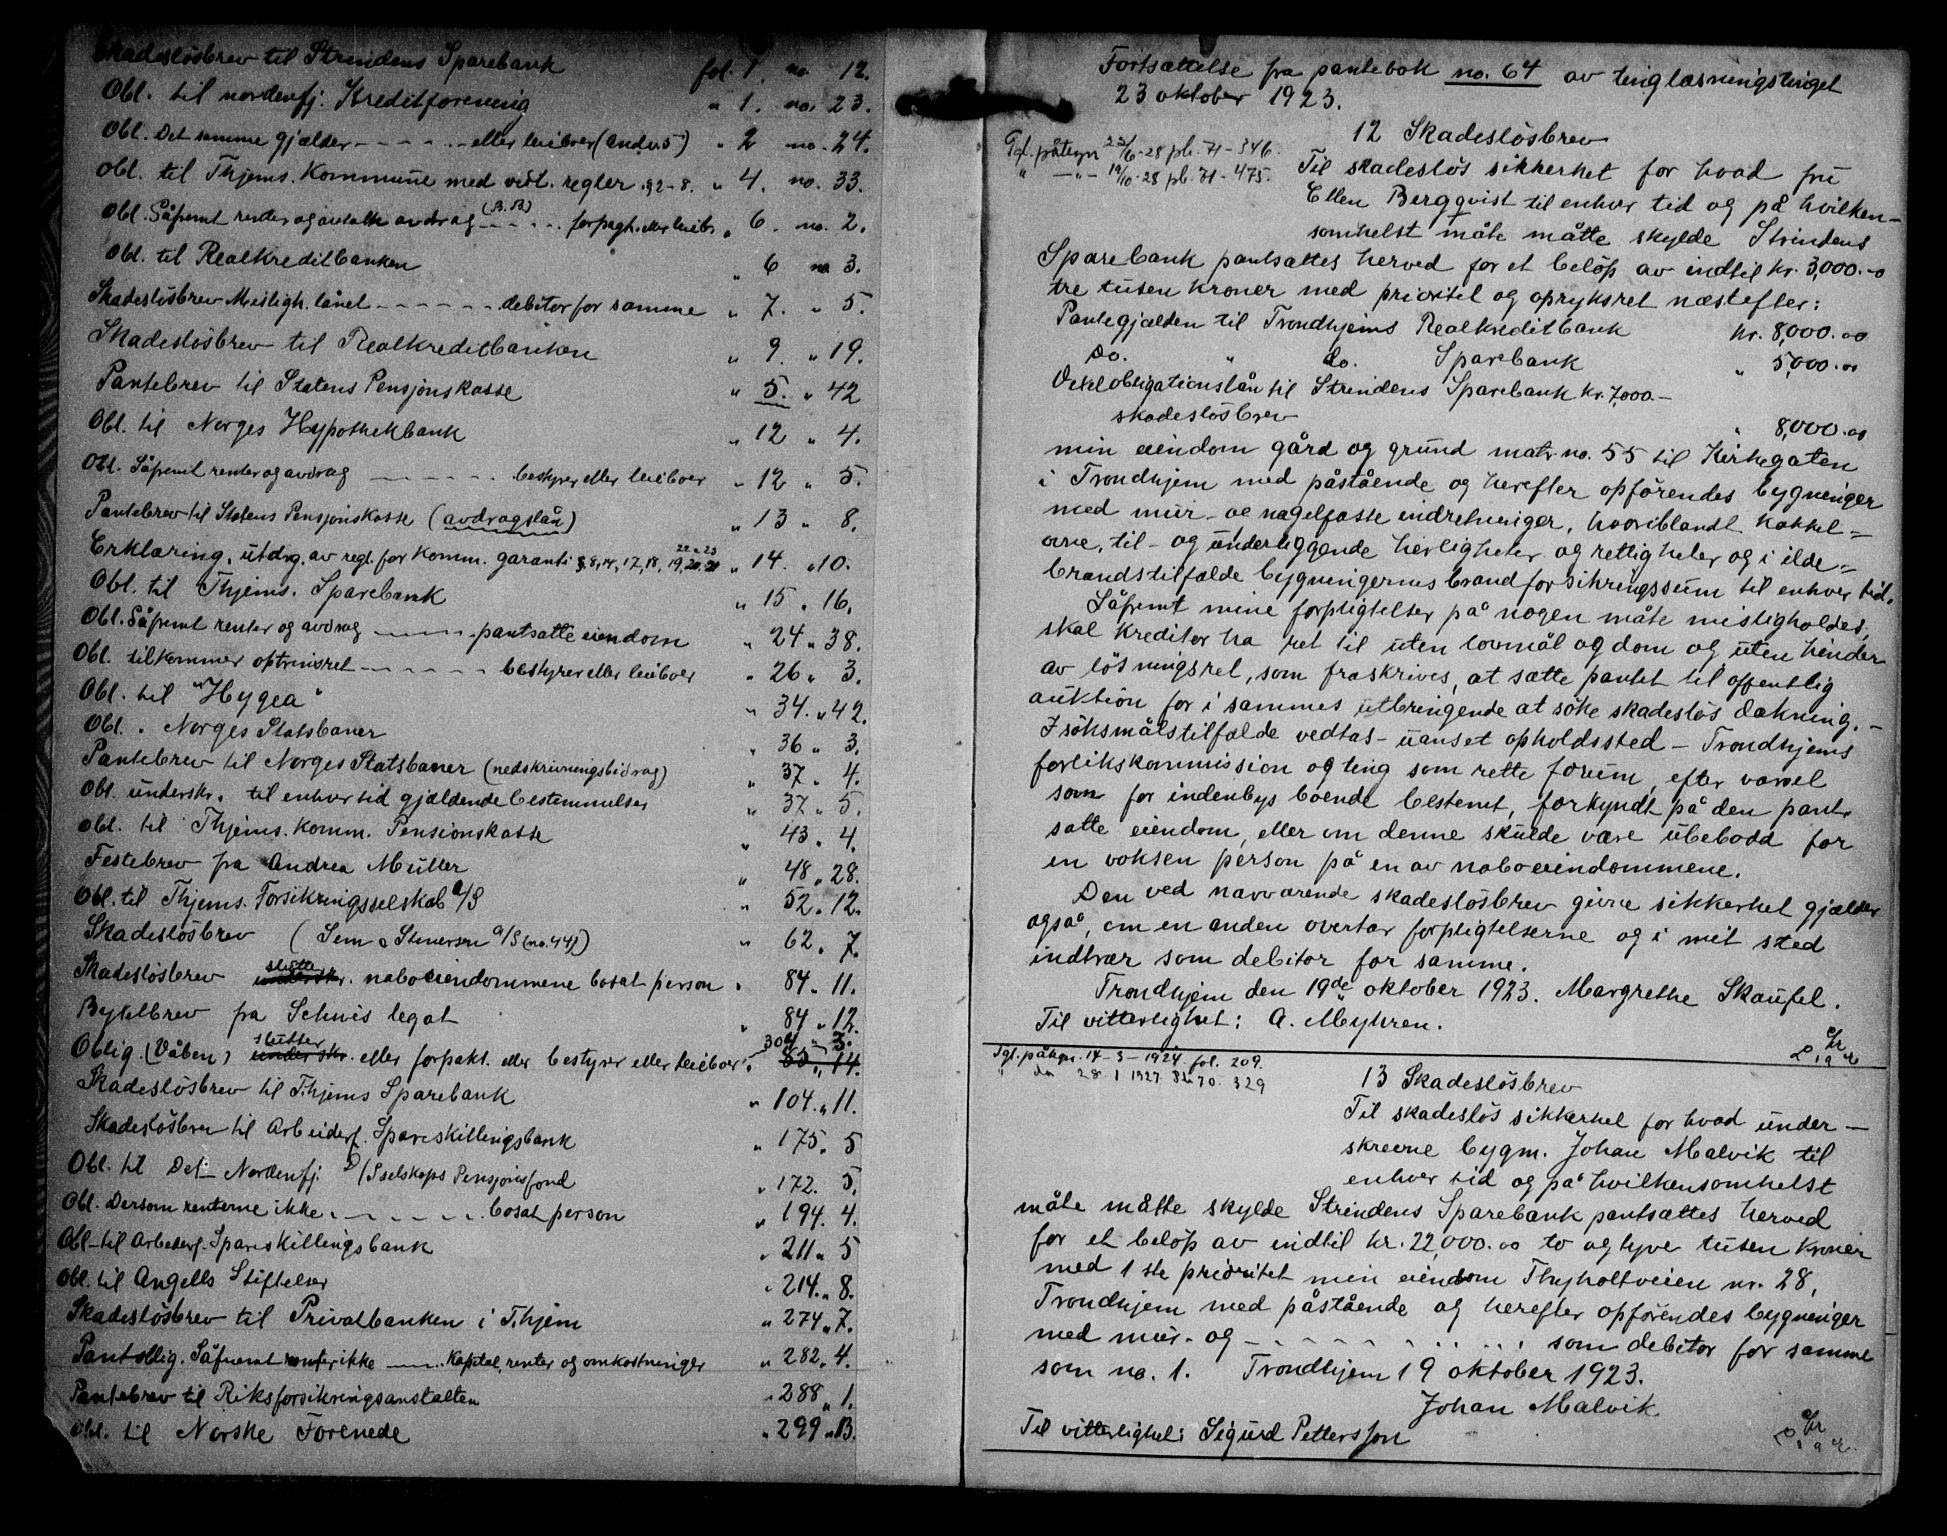 Skadesløsbrev til Strindens Sparebank fol. 1. no. 12.
Obl. til nordenfj. Kreditforening " 1. no. 23.
Obl. Det samme gjælder - - - - - - eller leiboer (andv. 5) " 2 no. 24.
Obl. til Thjems. Kommune med vedt. regler §2-8. " 4. no. 33.
Obl. Såfremt renter og avtalte avdrag (B.B) - - - - forpagt. eller leiebr. " 6. no. 2.
Obl. til Realkreditbanken " 6 no 3.
Skadesløsbrev Misligh. lånet - - - - - - debitor for samme " 7. " 5.
Skadesløsbrev til Realkreditbanken " 9. " 19.
Pantebrev til Statens Pensjonskasse " 5. " 42
Obl. til Norges Hypothekbank " 12 " 4.
Obl. Såfremt renter og avdrag - - - - - bestyrer eller leieboer " 12 " 5.
Pantebrev til Statens Pensjonskasse (avdragslån) " 13 " 8.
Erklæring, utdrg. av regl. for Komm. garanti §. 8, 14, 17, 18, 19, 20, 21 22 & 23 " 14. " 10.
Obl. til Thjems. Sparebank " 15 " 16.
Obl. Såfremt renter og avdrag - - - - pantsatte eiendom " 24 " 38.
Obl. tilkommer optrinsret - - - - - - bestyrer eller leieboer " 26 " 3.
Obl. til "Hygea" " 34. " 42.
Obl. " Norges Statsbaner " 36 " 3.
Pantebrev til Norges Statsbaner (nedskrivningsbidrag) " 37 " 4.
Obl. underskr. til enhver tid gjældende bestemmelser " 37 " 5.
Obl. til Thjems. Komm. Pensionskasse " 43 " 4.
Festebrev fra Andrea Müller " 48 " 28.
Obl. til Thjems. Forsikringsselskab A/S " 52 " 12.
Skadesløsbrev (Sem & Stenersen A/S (no. 441) " 62 " 7.
Skadesløsbrev slutter underskr. naboeiendommene bosat person " 84 " 11.
Bykelbrev fra Schnis legat " 84 " 12.
Oblig. (Våben) slutter underskr. eller forpakt. eller bestyrer eller leieboer " 304 " 3. 85 " 14.
Skadesløsbrev til T.hjems Sparebank " 104 " 11.
Skadesløsbrev til Arbeiderf. Spareskillingsbank " 175 " 5
Obl. til Det Nordenfj. D/Sselskaps Pensjonsfond " 172. 5.
Obl. Dersom renterne ikke - - - - - - bosat person " 194. 4.
Obl. til Arbeiderf. Spareskillingsbank " 211 " 5
Obl. til Angells Stiftelser " 214 " 8.
Skadesløsbrev til Privatbanken i T.hjem " 274 " 7.
Pantoblig. Såfremt renter ikke - - - Kapital, renter og omkostninger " 282 " 4.
Pantebrev til Riksforsikringsanstalten " 288 " 1.
Obl. til Norske Forenede " 299 " 13.
Fortsættelse fra pantebok no. 64 av tinglæsningstinget
23 oktober 1923.
12 Skadesløsbrev
Tgl. påtegn 25/6-28 pb. 71-346.
" - " - 19/10-28 pb. 71-475.
Til skadesløs sikkerhet for hvad fru
Ellen Bergqvist til enhver tid og på hvilken-
somhelst måte måtte skylde Strindens
Sparebank pantsættes herved for et beløp av indtil kr. 3,000.-
tre tusen kroner med prioritet og opryksret næstefter:
Pantegjælden til Trondhjems Realkreditbank kr. 8,000.00
Do. " do. Sparebank " 5,000.00
Vekselobligationslån til Strindens Sparebank kr. 7,000.-
skadesløsbrev " 8,000.00
min eiendom gård og grund matr. no. 55 til Kirkegaten
i Trondhjem med påstående og herefter opførendes bygninger
med mur- og nagelfaste indretninger, hvoriblandt kakkel=
ovne, til- og underliggende herligheter og rettigheter og i ilde=
brandstilfælde bygningernes brandforsikringssum til enhver tid.
Såfremt mine forpligtelser på nogen måte misligholdes,
skal kreditor ha ret til uten lovmål og dom og uten hinder
av løsningsret, som fraskrives, at sætte pantet til offentlig
auktion for i sammes utbringende at søke skadesløs dækning. -
I søksmålstilfælde vedtas - uanset opholdssted - Trondhjems
forlikskommission og ting som rette forum, efter varsel
som for indenbys boende bestemt, forkyndt på den pant-
satte eiendom, eller om denne skulde være ubebodd for
en voksen person på en av naboeiendommene.
Den ved nærværende skadesløsbrev givne sikkerhet gjælder
også, om en anden overtar forpligtelserne og i mit sted
indtrær som debitor for samme.
Trondhjem den 19de oktober 1923. Margrethe Skaufel.
Til vitterlighet: A. Meyhren.
Tgl. påtegn. 14-3-1924 fol. 209.
" do 28.1 1927 Bk 70. 329
13 Skadesløsbrev
Til skadesløs sikkerhet for hvad under-
skrevne bygm. Johan Malvik til
enhver tid og på hvilkensomhelst
måte måtte skylde Strindens Sparebank pantsættes herved
for et beløp av indtil kr. 22,000.00 to og tyve tusen kroner
med 1ste prioritet min eiendom Thyholtveien nr. 28,
Trondhjem med påstående og herefter opførendes bygninger
med mur- og - - - - - - - som debitor for samme
som no. 1. Trondhjem 19 oktober 1923.
Johan Malvik
Til vitterlighet: Sigurd Petterssen